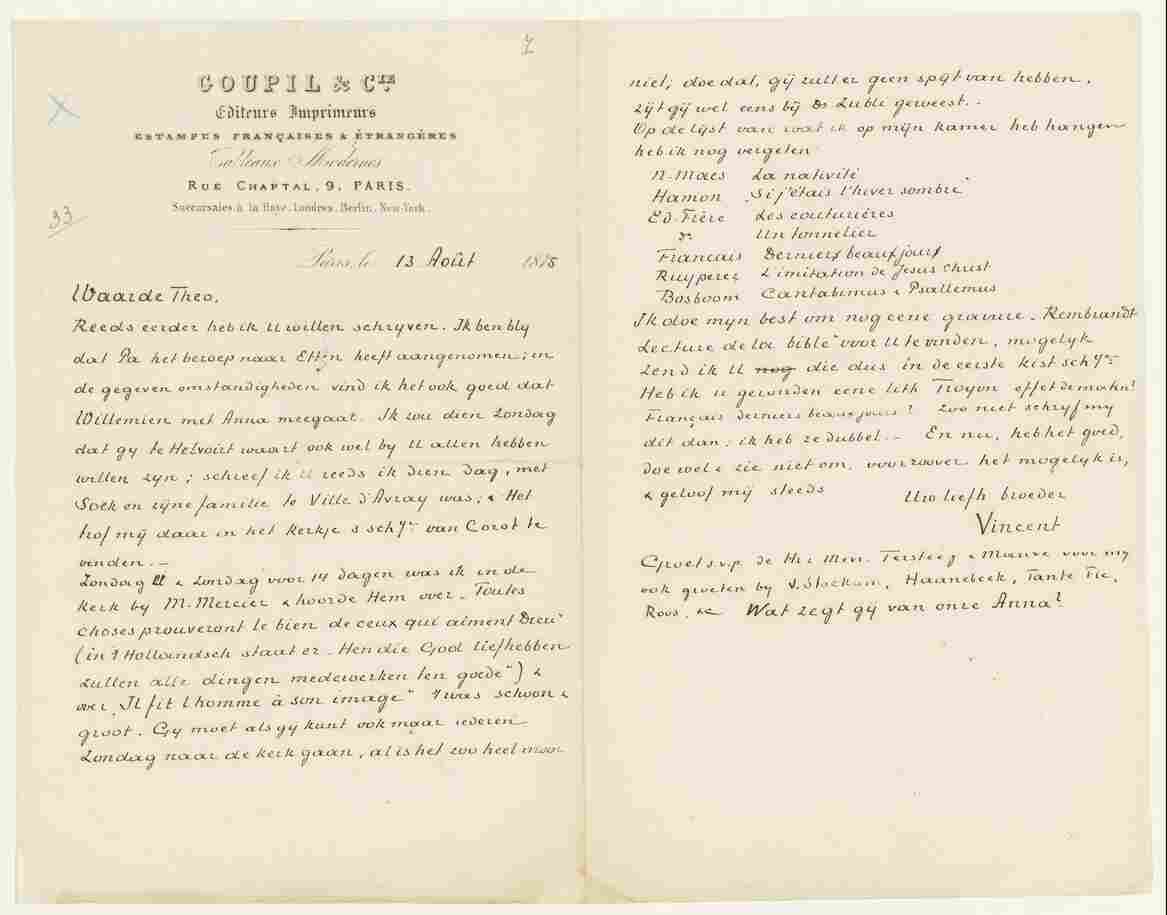 7
GOUPIL & Cie
Editeurs Imprimeurs
ESTAMPES FRANÇAISES & ÉTRANGÈRES
Tableaux Modernes
RUE CHAPTAL, 9, PARIS.
Succursales à la Haye, Londres, Berlin, New-York.
33
Paris, le 13 Août 1875
Waarde Theo,
Reeds eerder heb ik U willen schrijven. Ik ben bly
dat Pa het beroep naar Etten heeft aangenomen; in
de gegeven omstandigheden vind ik het ook goed dat
Willemien met Anna meegaat. Ik zou dien Zondag
dat gy te Helvoirt waart ook wel by U allen hebben
willen zyn; schreef ik U reeds ik dien dag, met
Soek en zijne familie te Ville d'Avray was; & Het
trof mij daar in het kerkje 3 schyen van Corot te
vinden. —
Zondag ll & Zondag voor 14 dagen was ik in de
kerk by M. Mercier & hoorde Hem over „Toutes
choses prouveront le bien de ceux qui aiment Dieu"
(in 't Hollandsch staat er „Hen die God liefhebben
zullen alle dingen medewerken ten goede") &
over „Il fit l'homme à son image" 't was schoon &
groot. Gy moet als gij kunt ook maar iederen
Zondag naar de kerk gaan, al is het zoo heel mooi
niet; doe dat, gij zult er geen spijt van hebben.
Zijt gij wel eens bij Ds Zubli geweest. -
Op de lijst van wat ik op mijn kamer heb hangen
heb ik nog vergeten
N. Maes La nativité
Hamon „Si j'étais l'hiver sombre"
Ed. Frère Les couturières
do Un tonnelier
Français Derniers beaux jours
Ruyperez L'imitation de Jesus Christ
Bosboom Cantabimus & Psallemus
Ik doe myn best om nog eene gravure „Rembrandt
Lecture de la bible" voor U te vinden, mogelyk
zend ik U nog die dus in de eerste kist schyen
Heb ik u gezonden eene lith Troyon effet de matin?
Français derniers beaux jours? Zoo niet schryf my
dit dan; ik heb ze dubbel. — En nu, heb het goed,
doe wel & zie niet om, voor zoover het mogelyk is,
& geloof mij steeds
Uw liefh broeder
Vincent
Groet s.v.p. de Hr & Mevr. Tersteeg & Mauve voor my
ook groeten by v. Stockum, Haanebeek, Tante Fie,
Roos, &c Wat zegt gij van onze Anna?